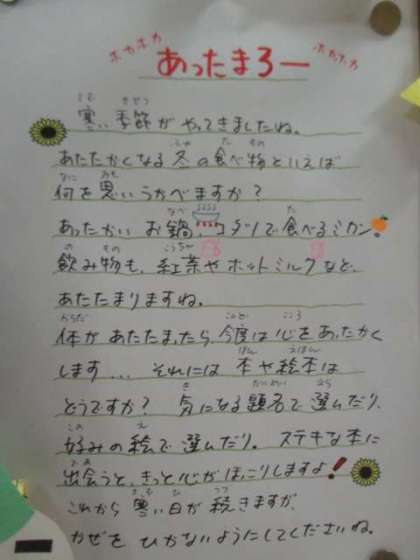 ホカホカ
あったまろー
ホカホカ
寒い季節がやってきましたね。
あたたかくなる冬の食べ物といえば
何を思いうかべますか?
あったかいお鍋、コタツで食べるミカン。
飲み物も、紅茶やホットミルクなど、
あたたまりますね。
体があたたまったら、今度は心をあったかく
します... それには本や絵本は
どうですか? 気になる題名で選んだり、
好みの絵で選んだり。ステキな本に
出会うと、きっと心がほっこりしますよ!
これから寒い日が続きますが、
かぜをひかないようにしてくださいね。